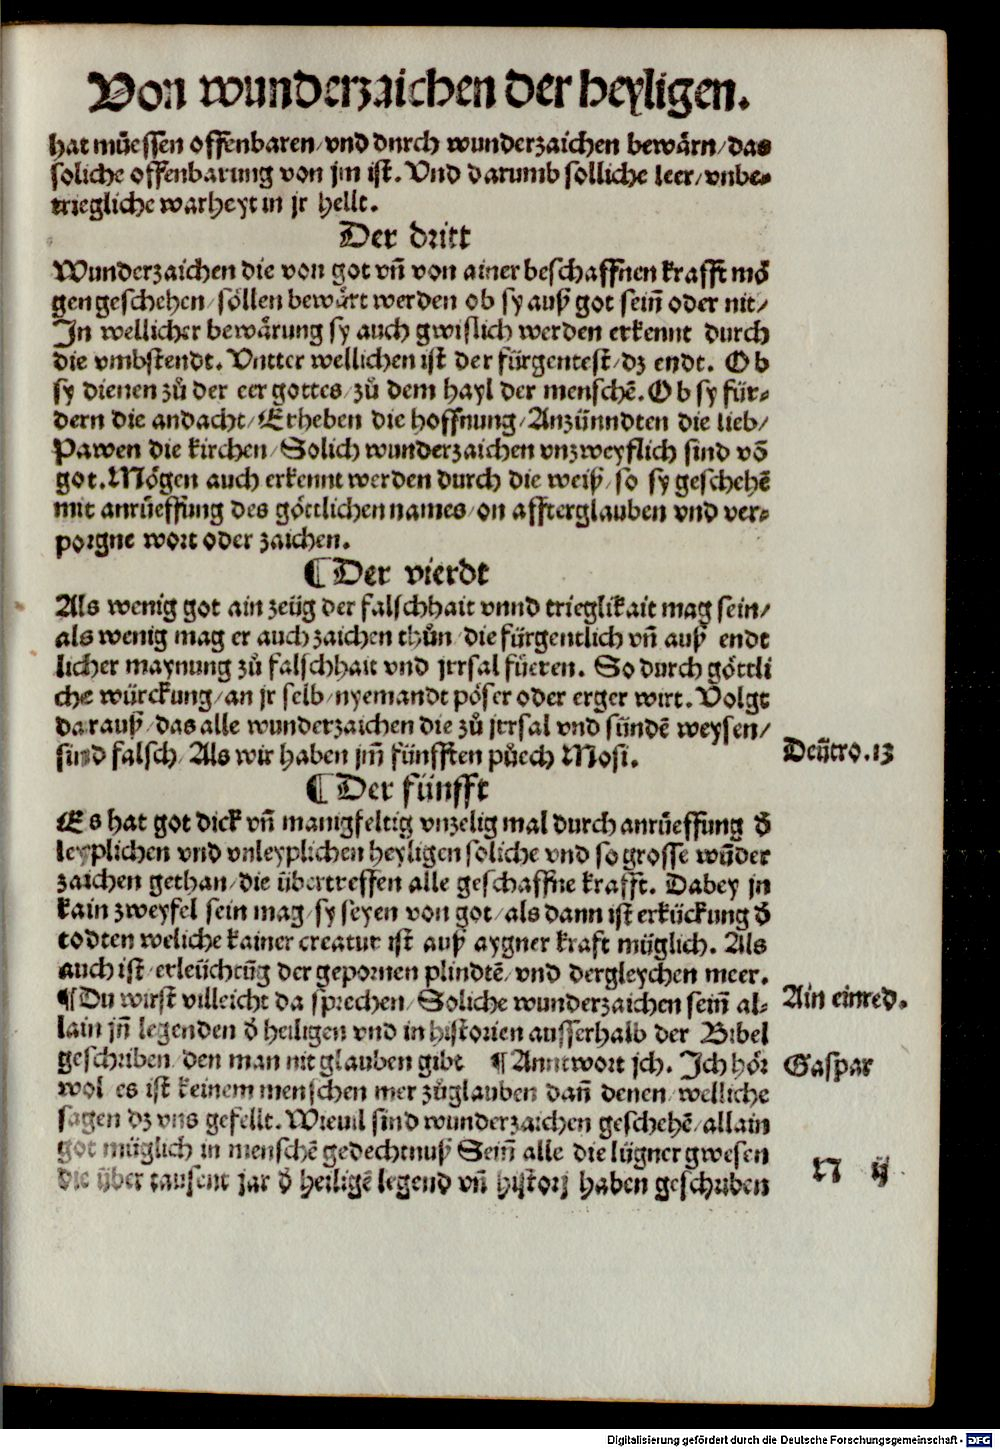 Von wunderzaichen der heyligen.
hat müessen offenbaren/vnd durch wunderzaichen bewärn/das
soliche offenbarung von jm ist. Vnd darumb solliche leer/vnbe-
triegliche warheyt in jr hellt.
Der dritt
Wunderzaichen die von got vñ von ainer beschaffnen krafft mö
gen geschehen/söllen bewärt werden ob sy auß got sein̄ oder nit/
In wellicher bewärung sy auch gwislich werden erkennt durch
die vmbstendt. Vntter wellichen ist der fürgentest/dz endt. Ob
sy dienen zů der eer gottes/zů dem hayl der menschē. Ob sy für-
dern die andacht/Erheben die hoffnung/Anzünndten die lieb/
Pawen die kirchen/Solich wunderzaichen vnzweyflich sind vō
got. Mögen auch erkennt werden durch die weiß/so sy geschehē
mit anrüeffung des göttlichen names/on affterglauben vnd ver-
porgne wort oder zaichen.
¶ Der vierdt
Als wenig got ain zeüg der falschhait vnnd trieglikait mag sein/
als wenig mag er auch zaichen thůn/die fürgentlich vñ auß endt
licher maynung zů falschhait vnd jrrsal füeren. So durch göttli
che würckung/an jr selb/nyemandt pöser oder erger wirt. Volgt
darauß/das alle wunderzaichen die zů jrrsal vnd sündē weysen/
sind falsch/Als wir haben jm̄ fünfften půech Mosi.
Deütro.13
¶ Der fünfft
Es hat got dick vñ manigfeltig vnzelig mal durch anrüeffung d̄
leyplichen vnd vnleyplichen heyligen soliche vnd so grosse wūder
zaichen gethan/die übertreffen alle geschaffne krafft. Dabey jn
kain zweyfel sein mag/sy seyen von got/als dann ist erkückung d̄
todten weliche kainer creatur ist auß aygner kraft müglich. Als
auch ist/erleüchtūg der gepornen plindtē/vnd dergleychen meer.
¶ Du wirst villeicht da sprechen/Soliche wunderzaichen sein̄ al-
Ain einred.
lain jn̄ legenden d̄ heiligen vnd in historien ausserhalb der Bibel
geschriben/den man nit glauben gibt ¶ Anntwort jch. Ich hör
Gaspar
wol es ist keinem menschen mer zůglauben dañ denen/welliche
sagen dz vns gefellt. Wieuil sind wunderzaichen geschehē/allain
got müglich in menschē gedechtnuß Sein̄ alle die lügner gwesen
die über tausent jar d̄ heiligē legend vñ historj haben geschriben
N ij
Digitalisierung gefördert durch die Deutsche Forschungsgemeinschaft - DFG